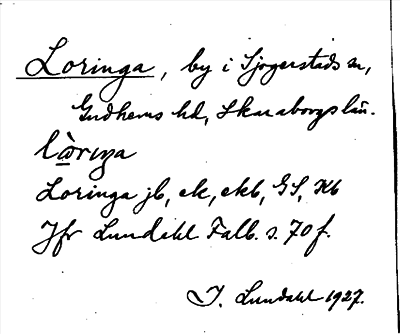 Loringa, by i Sjogerstads sn,
Gudhems hd, Skaraborgs län.
lωriŋa
Loringa jb, ek, ekb, GS, Kb
Jfr Lundahl Falb. s. 70 f.
I. Lundahl 1927.